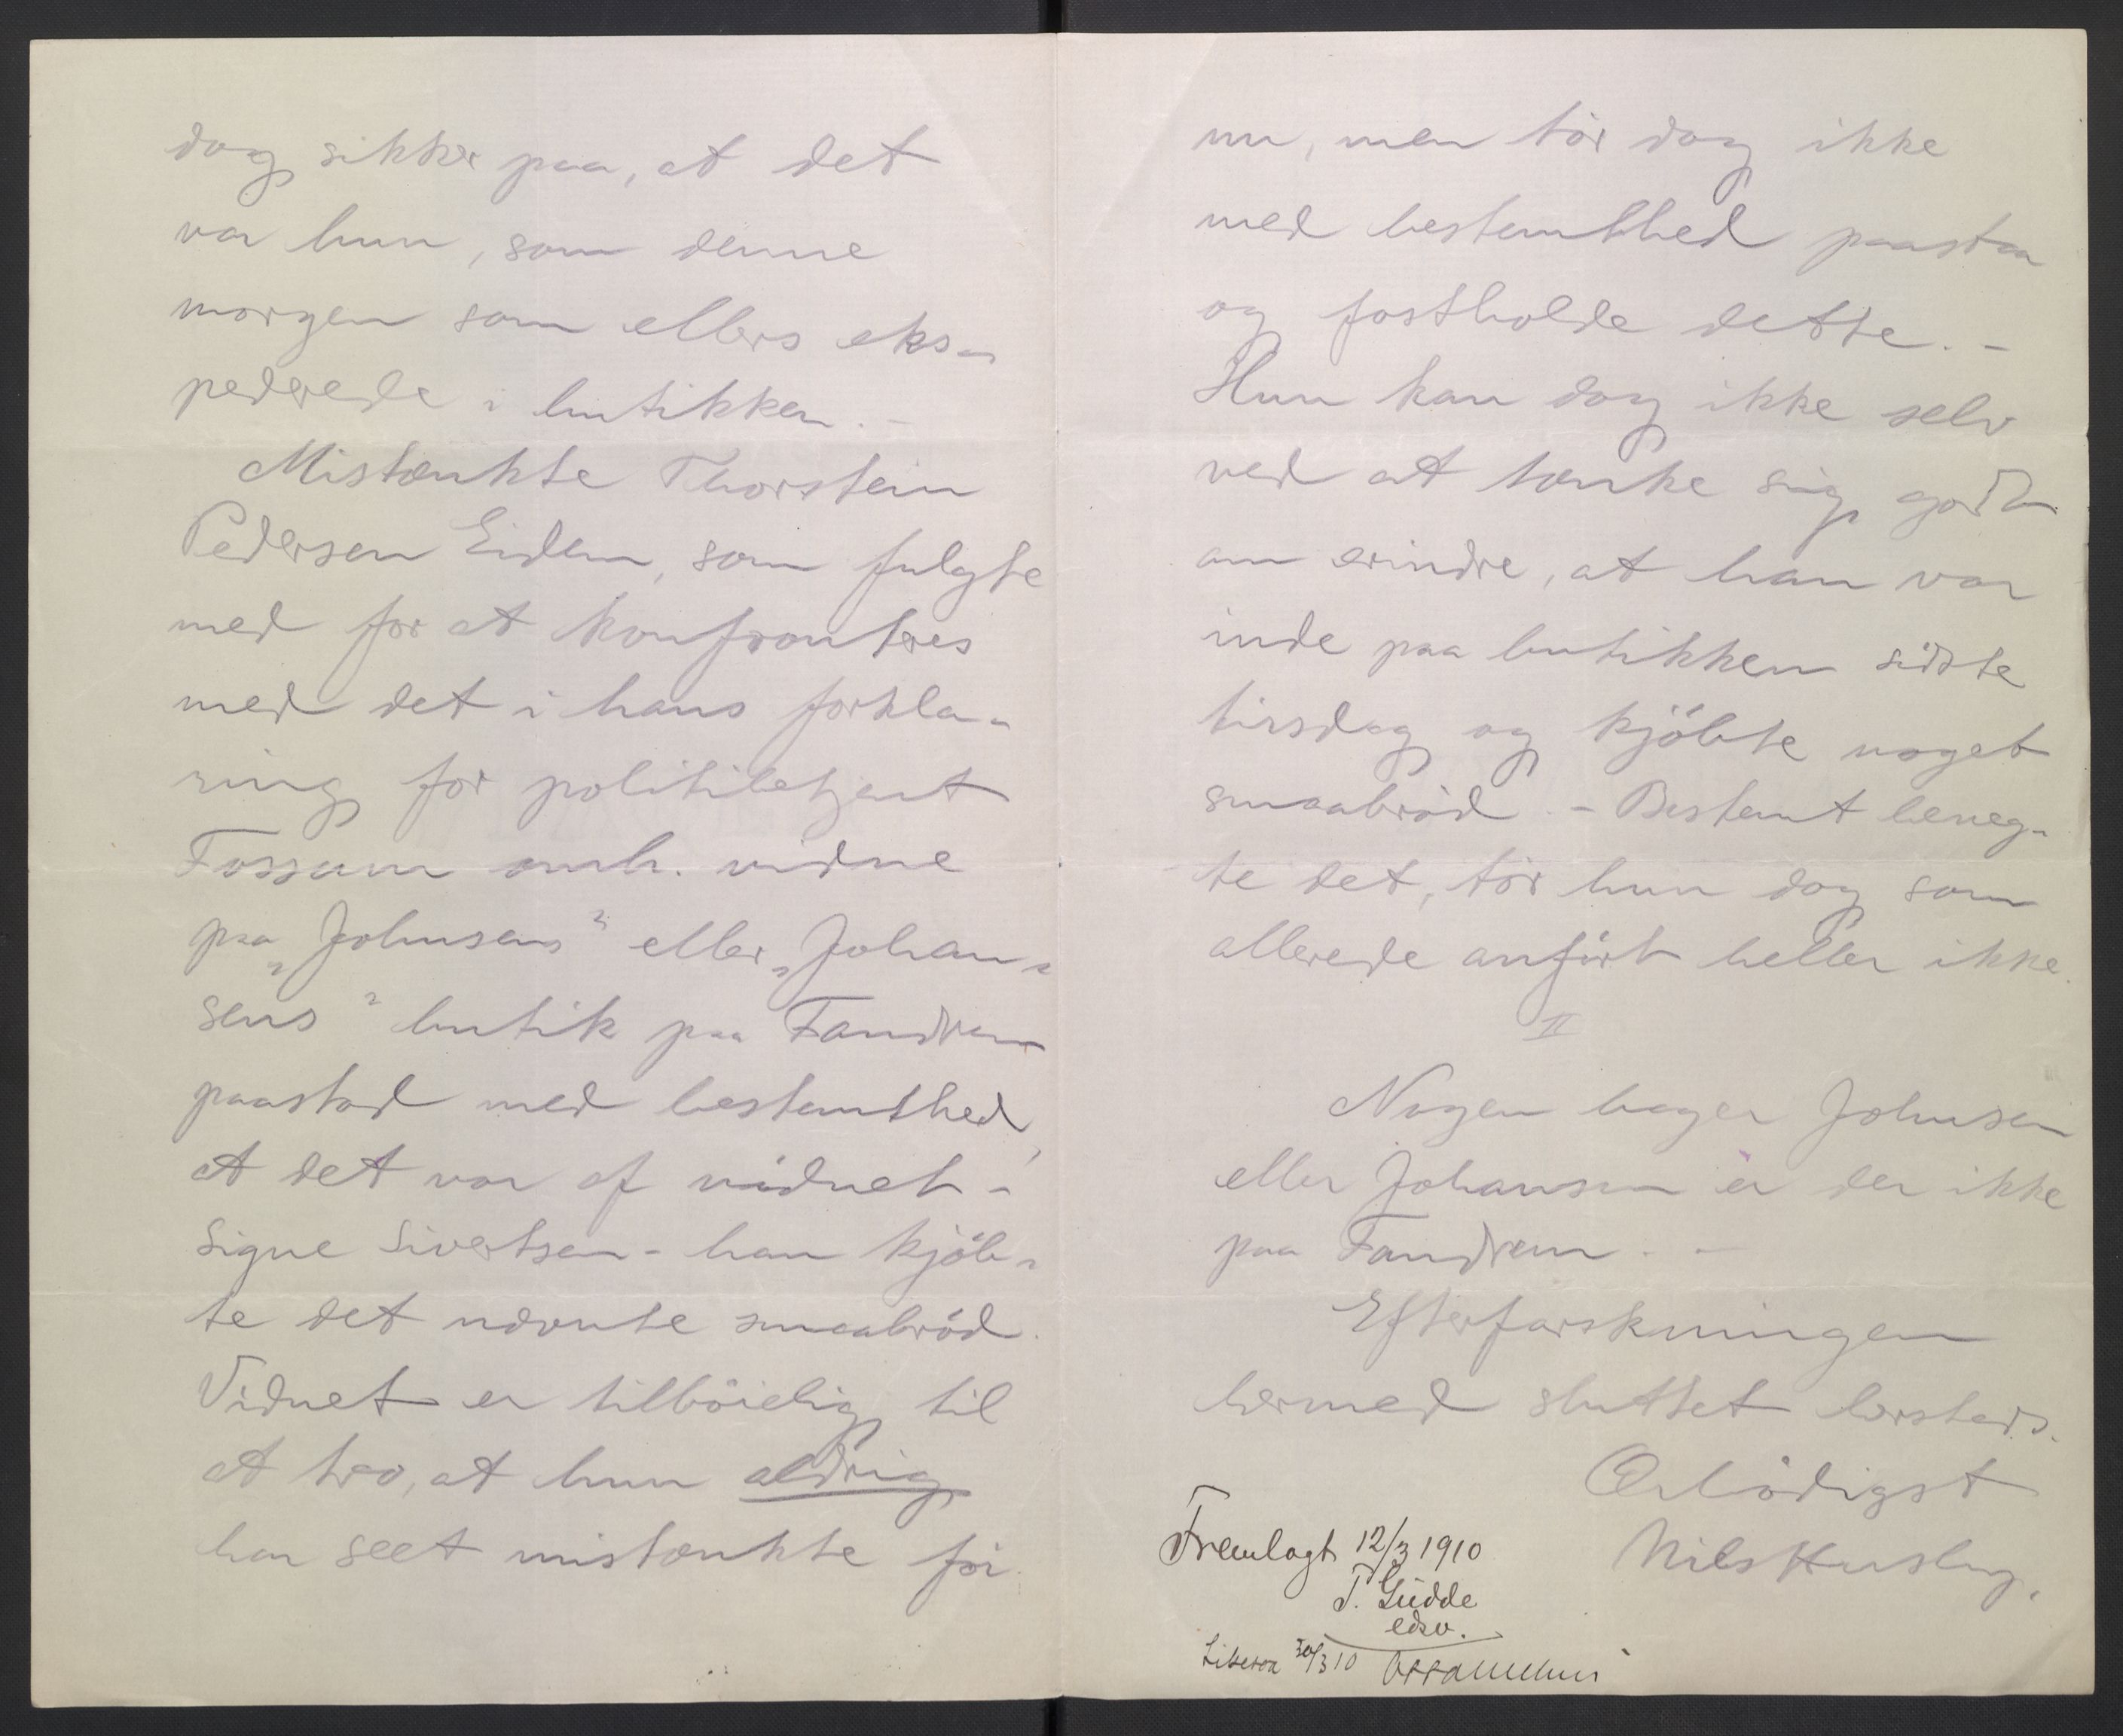 dog sikker paa, at det
var hun, som denne
morgen som ellers eks-
pederede i butikken. -
Mistænkte Thorstein
Pedersen Eidem, som fulgte
med for at konfronteres
med det i hans forkla-
ring for politibetjent
Fossum omh. vidne
paa „Johnsens" eller „Johan-
sens" butik paa Fandrem
paastod med bestemthed,
at det var af vidnet -
Signe Sivertsen - han kjöb-
te det nævnte smaabröd.
Vidnet er tilböielig til
at tro, at hun aldrig
har seet mistænkte för
nu, men tör dog ikke
med bestemthed paastaa
og fastholde dette. -
Hun kan dog ikke selv
ved at tænke sig godt
om erindre, at han var
inde paa butikken sidste
tirsdag og kjöbte noget
smaabröd. - Bestemt beneg-
te det, tör hun dog som
allerede anfört heller ikke.
II
Nogen bager Johnsen
eller Johansen er der ikke
paa Fandrem. -
Efterforskningen
hermed sluttet hersteds.
Ærbödigst
Nils Husby.
Fremlagt 12/3 1910
T. Gudde
edsv.
30/3 10